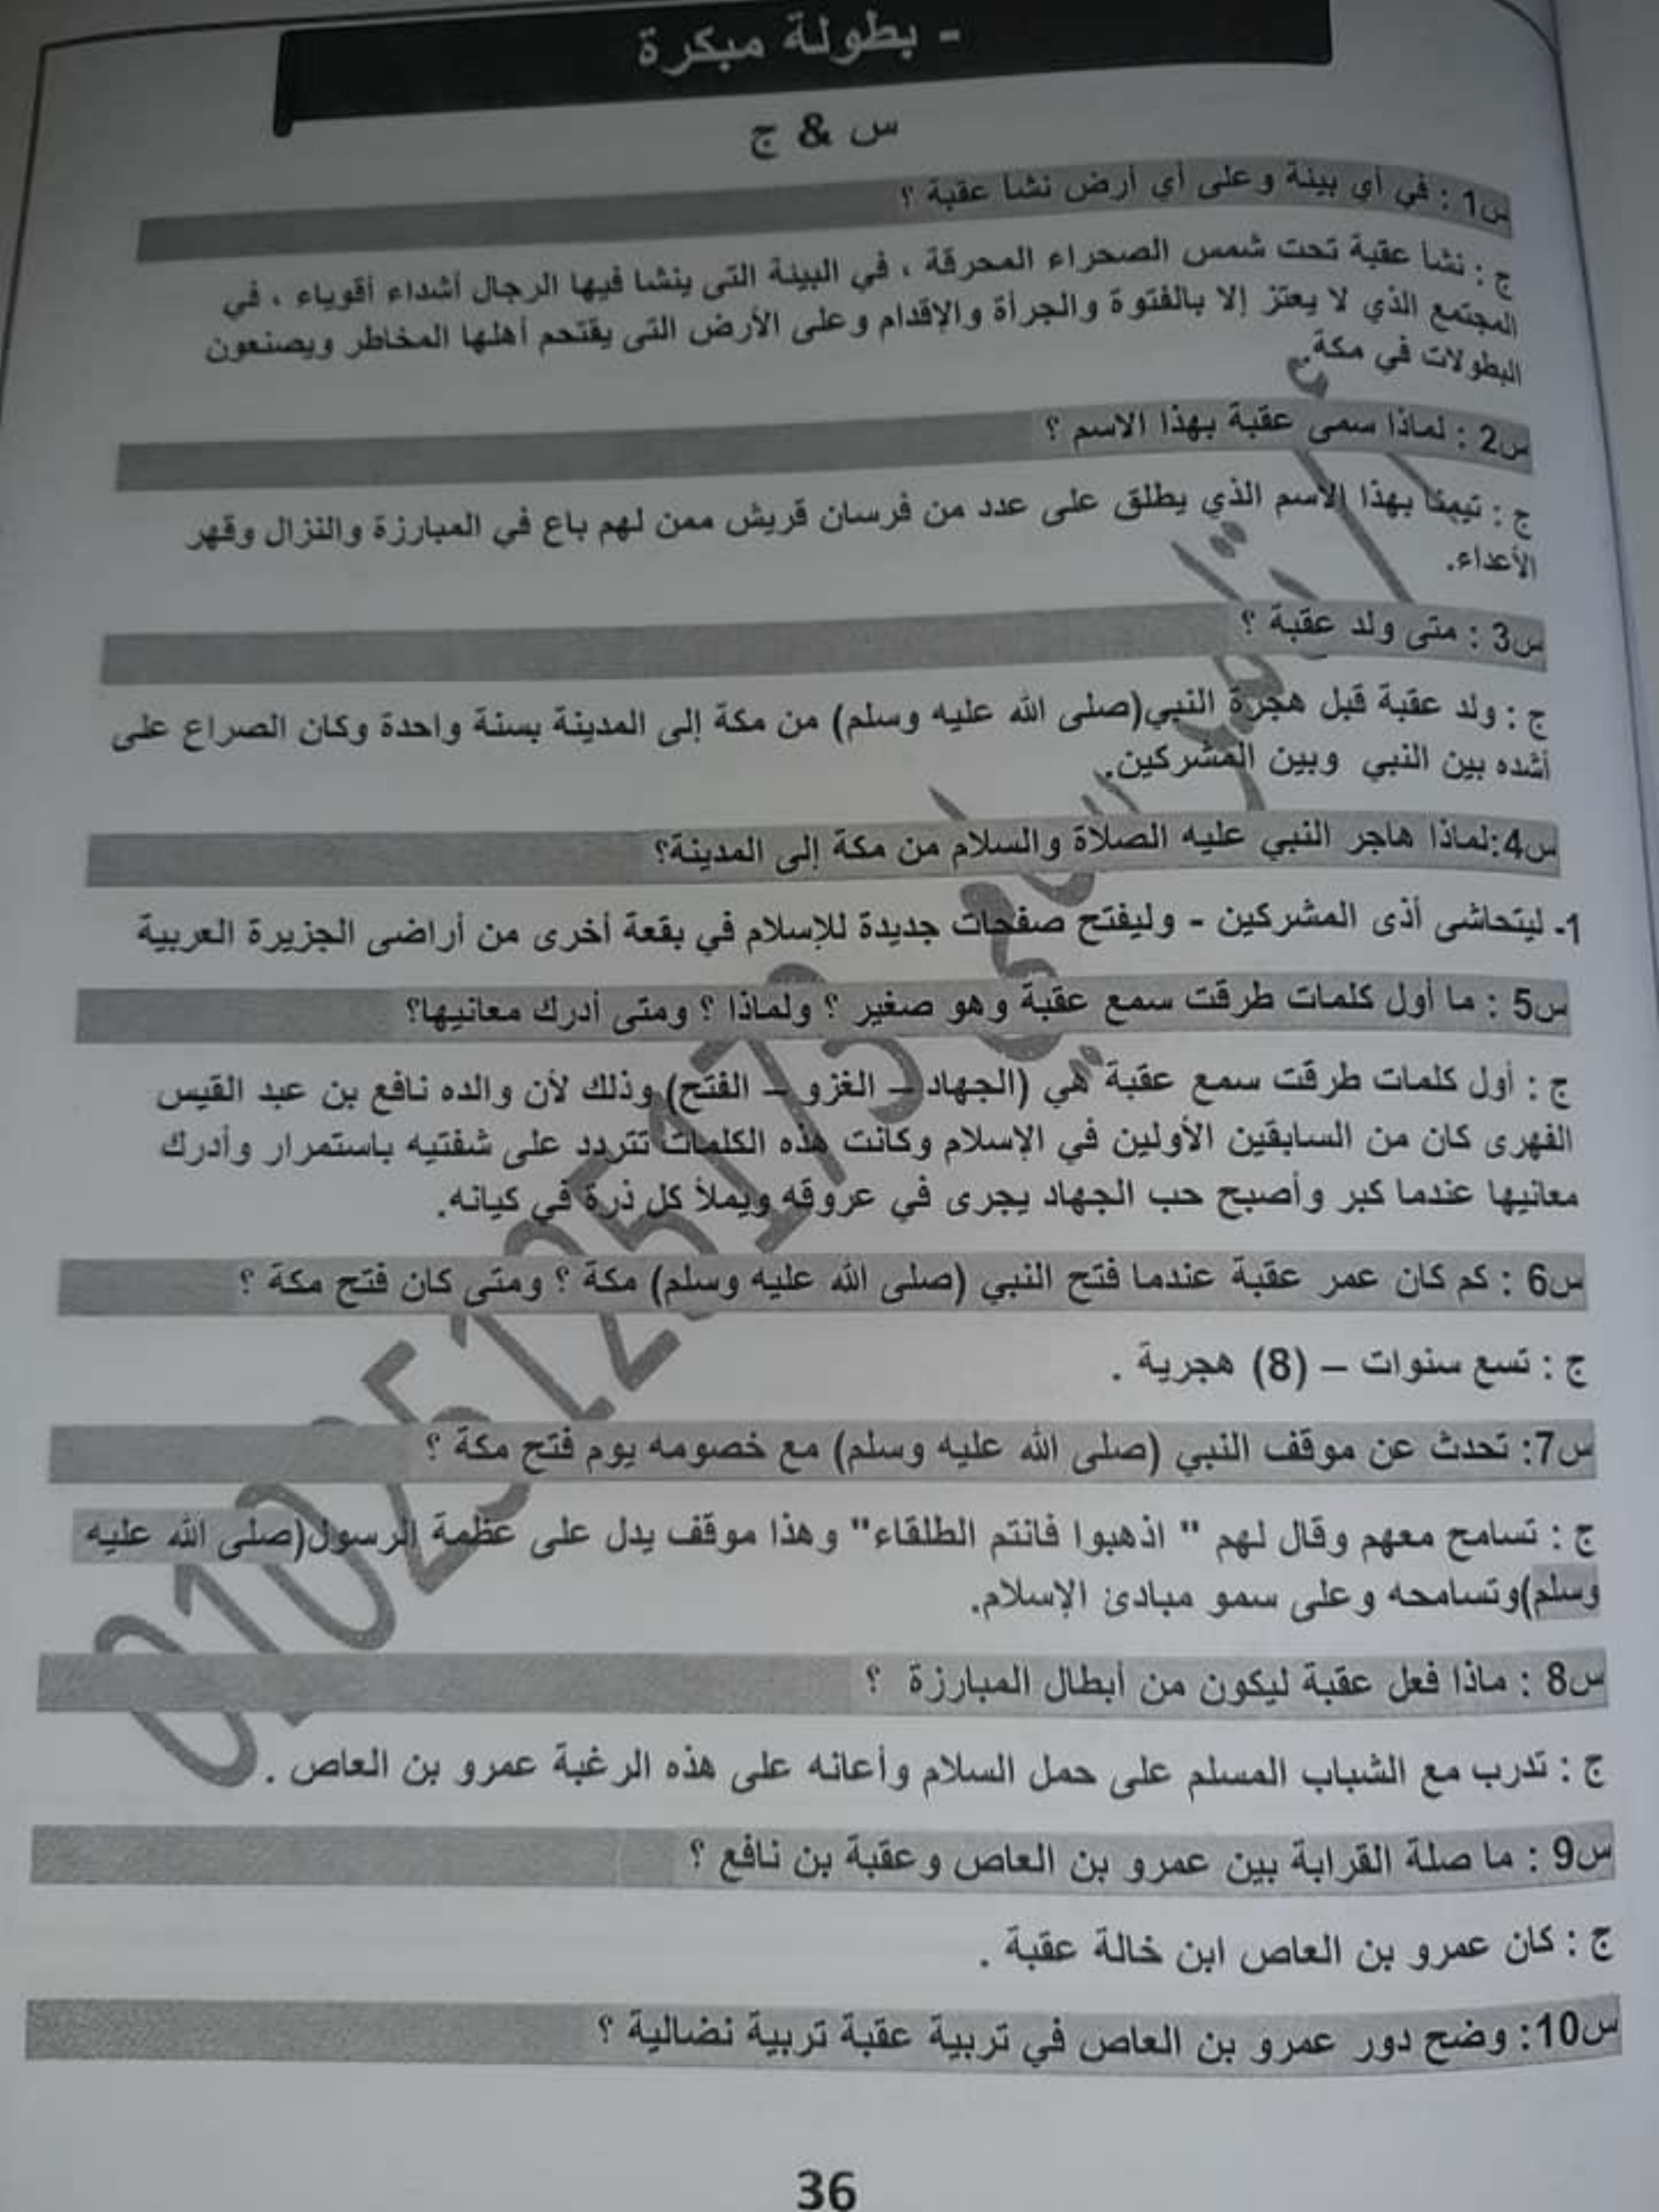 - بطولة مبكرة
س & ج
س1 : في أي بيئة وعلى أي أرض نشأ عقبة ؟
ج : نشأ عقبة تحت شمس الصحراء المحرقة ، في البيئة التى ينشا فيها الرجال أشداء أقوياء ، في
المجتمع الذي لا يعتز إلا بالفتوة والجرأة والإقدام وعلى الأرض التى يقتحم أهلها المخاطر ويصنعون
البطولات في مكة.
س2 : لماذا سمى عقبة بهذا الاسم ؟
ج : تيمنا بهذا الاسم الذي يطلق على عدد من فرسان قريش ممن لهم باع في المبارزة والنزال وقهر
الأعداء.
س3 : متى ولد عقبة ؟
ج : ولد عقبة قبل هجرة النبي(صلى الله عليه وسلم) من مكة إلى المدينة بسنة واحدة وكان الصراع على
أشده بين النبي وبين المشركين.
س4:لماذا هاجر النبي عليه الصلاة والسلام من مكة إلى المدينة؟
1- ليتحاشى أذى المشركين - وليفتح صفحات جديدة للإسلام في بقعة أخرى من أراضى الجزيرة العربية
س5 : ما أول كلمات طرقت سمع عقبة وهو صغير ؟ ولماذا ؟ ومتى أدرك معانيها؟
ج : أول كلمات طرقت سمع عقبة هي (الجهاد – الغزو – الفتح) وذلك لأن والده نافع بن عبد القيس
الفهرى كان من السابقين الأولين في الإسلام وكانت هذه الكلمات تتردد على شفتيه باستمرار وأدرك
معانيها عندما كبر وأصبح حب الجهاد يجرى في عروقه ويملأ كل ذرة في كيانه.
س6 : كم كان عمر عقبة عندما فتح النبي (صلى الله عليه وسلم) مكة ؟ ومتى كان فتح مكة ؟
ج : تسع سنوات – (8) هجرية .
س7: تحدث عن موقف النبي (صلى الله عليه وسلم) مع خصومه يوم فتح مكة ؟
ج : تسامح معهم وقال لهم " اذهبوا فانتم الطلقاء" وهذا موقف يدل على عظمة الرسول(صلى الله عليه
وسلم)وتسامحه وعلى سمو مبادئ الإسلام.
س8 : ماذا فعل عقبة ليكون من أبطال المبارزة ؟
ج : تدرب مع الشباب المسلم على حمل السلام وأعانه على هذه الرغبة عمرو بن العاص .
س9 : ما صلة القرابة بين عمرو بن العاص وعقبة بن نافع ؟
ج : كان عمرو بن العاص ابن خالة عقبة .
س10: وضح دور عمرو بن العاص في تربية عقبة تربية نضالية ؟
36